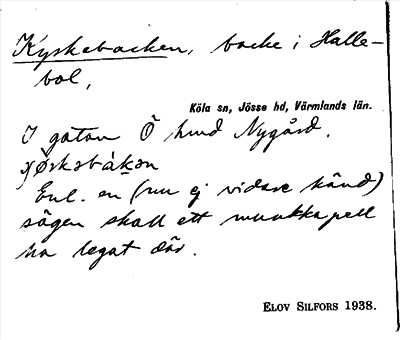 Kyrkebacken, backe i Halle-
bol,
Köla sn, Jösse hd, Värmlands län.
I gatan Ö hund Nygård.
Enl. en (nu ej vidare känd)
sägen skall ett munkkapell
ha legat där.
ELOV SILFORS 1938.